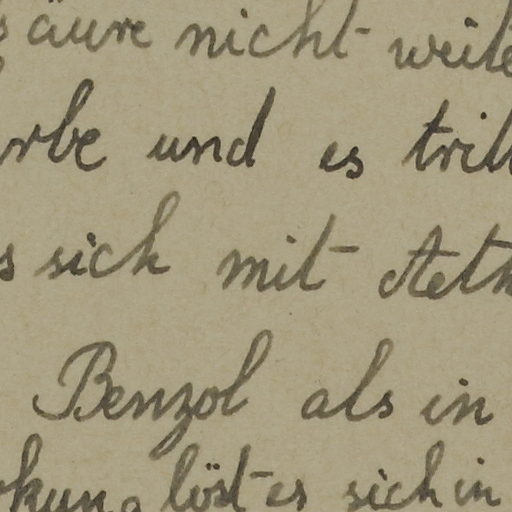 säure nicht weite
rbe und es tritt
s sich mit Aeth
Benzol als in
kung löst es sich in